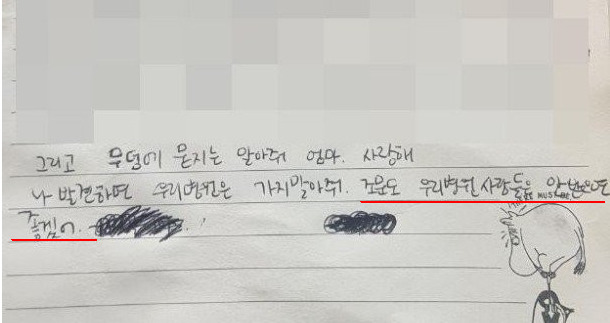 그리고 무덤에 묻지는 말아줘 엄마. 사랑해
나 발견하면 우리병원은 가지말아줘. 조문도 우리병원 사람들은 안 받으면
좋겠어.